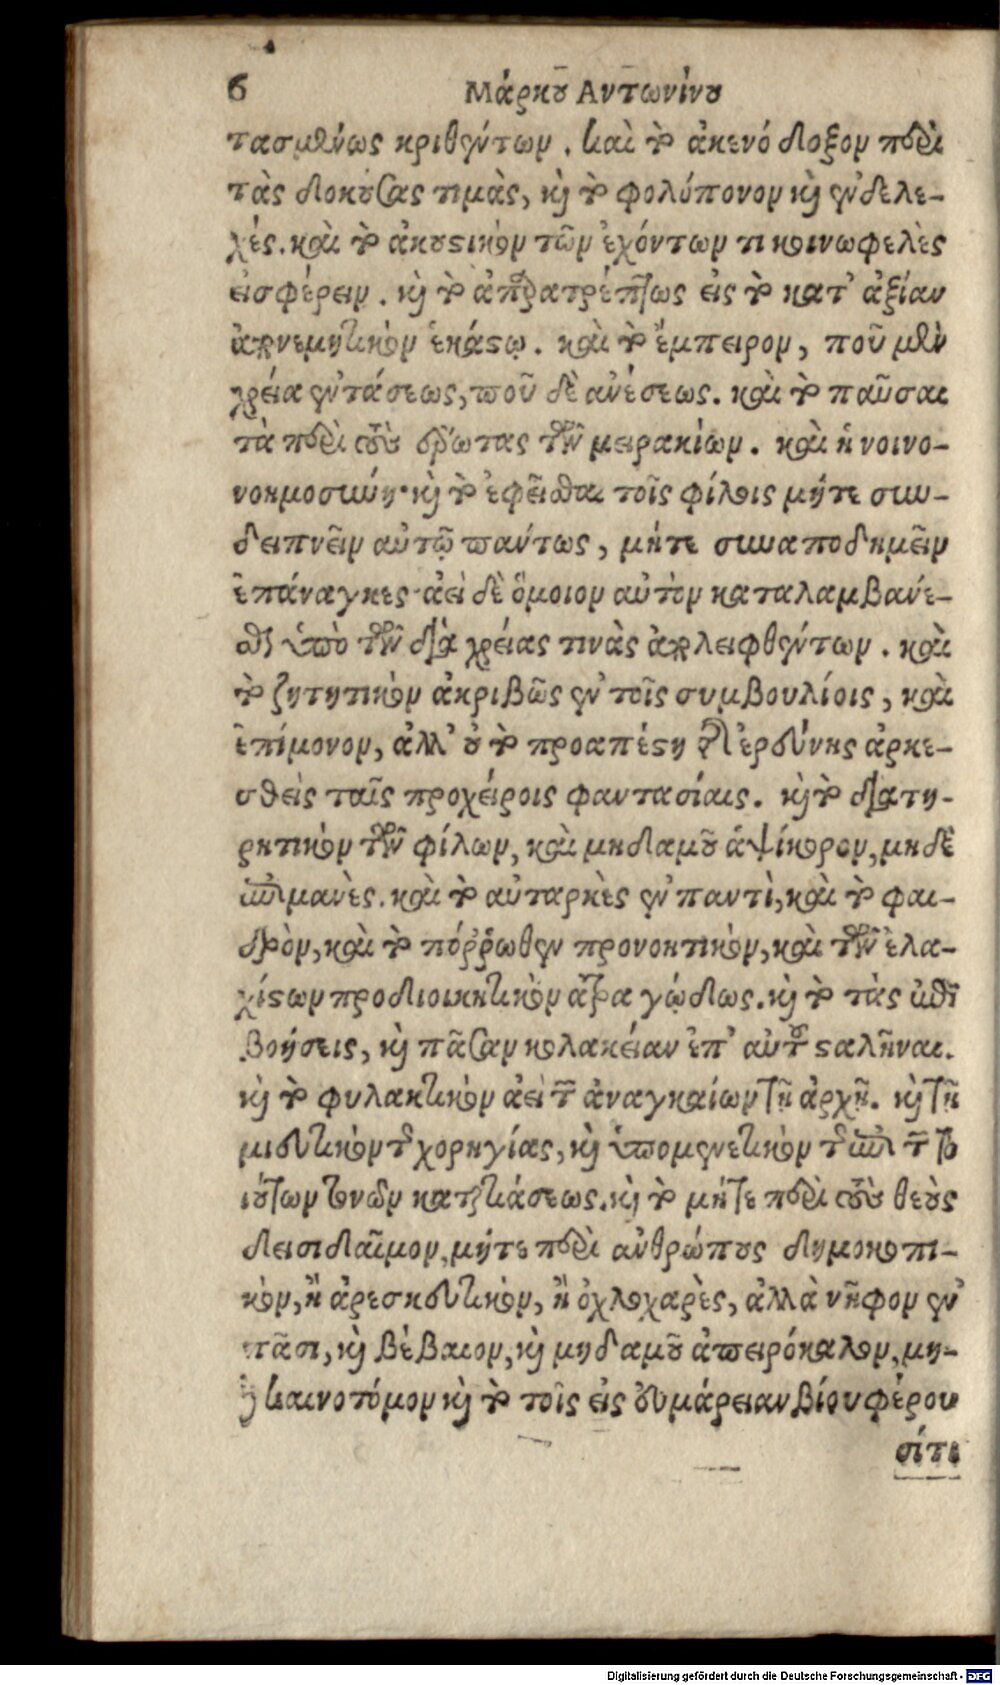 6 Μάρκου Αντωνίνου
τασμένως κριθέντων. καὶ τὸ ἀκενόδοξον περὶ
τὰς δοκούσας τιμὰς, καὶ τὸ φολόπονον καὶ ἐνδελε-
χές. καὶ τὸ ἀκουστικὸν τῶν ἐχόντων τι κοινωφελὲς
εἰσφέρειν. καὶ τὸ ἀπαρατρέπτως εἰς τὸ κατ' ἀξίαν
ἀπονεμητικὸν ἑκάστῳ. καὶ τὸ ἔμπειρον, ποῦ μὲν
χρεία ἐντάσεως, ποῦ δὲ ἀνέσεως. καὶ τὸ παῦσαι
τὰ περὶ τοὺς ἔρωτας τῶν μειρακίων. καὶ ἡ νοινο-
νοημοσύνη· καὶ τὸ ἐφεῖσθαι τοῖς φίλοις μήτε συν-
δειπνεῖν αὐτῷ πάντως, μήτε συναποδημεῖν
ἐπάναγκες· ἀεὶ δὲ ὅμοιον αὐτὸν καταλαμβάνε-
σθαι ὑπὸ τῶν διὰ χρείας τινὰς ἀπολειφθέντων. καὶ
τὸ ζητητικὸν ἀκριβῶς ἐν τοῖς συμβουλίοις, καὶ
ἐπίμονον, ἀλλ' οὐ τὸ προαπέστη τῆς ἐρεύνης ἀρκε-
σθεὶς ταῖς προχείροις φαντασίαις. καὶ τὸ διατη-
ρητικὸν τῶν φίλων, καὶ μηδαμοῦ ἁψίκορον, μηδὲ
ἐπιμανὲς. καὶ τὸ αὐταρκὲς ἐν παντὶ, καὶ τὸ φαι-
δρὸν, καὶ τὸ πόῤῥωθεν προνοητικὸν, καὶ τῶν ἐλα-
χίστων προδιοικητικὸν ἀτραγῴδως. καὶ τὸ τὰς ἐπι
βοήσεις, καὶ πᾶσαν κολακείαν ἐπ' αὐτοῦ σταλῆναι.
καὶ τὸ φυλακτικὸν ἀεὶ τῶν ἀναγκαίων τῇ ἀρχῇ. καὶ τῇ
μιευτικὸν τῆς χορηγίας, καὶ ὑπομενετικὸν τῆς ἐπὶ τῶν το
ιούτων τινῶν καταιτιάσεως. καὶ τὸ μήτε περὶ τοὺς θεοὺς
δεισιδαῖμον, μήτε περὶ ἀνθρώπους δημοκοπι-
κὸν, ἢ ἀρεσκευτικὸν, ἢ ὀχλοχαρὲς, ἀλλὰ νῆφον ἐν
πᾶσι, καὶ βέβαιον, καὶ μηδαμοῦ ἀπειρόκαλον, μη-
δὲ καινοτόμον καὶ τὸ τοῖς εἰς εὐμάρειαν βίου φέρου
σίτι
Digitalisierung gefördert durch die Deutsche Forschungsgemeinschaft - DFG